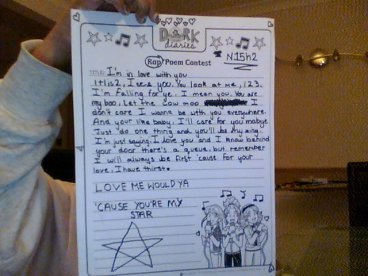 DORK
diaries
N.15h2
Rap Poem Contest
TITLE: I'm in love with you
1+1 is 2, I see you. You look at me, 123.
I'm falling for ye. I mean you. You are
my boo, Let the cow moo I
don't care I wanna be with you everywhere.
And your my baby, I'll care for you maybe.
Just do one thing and you'll be my
I'm just saying. I love you and I know behind
your door there's a queue, but remember
I will always be first 'cause for your
love, I have thirst.
LOVE ME WOULD YA
'CAUSE YOU'RE MY
STAR